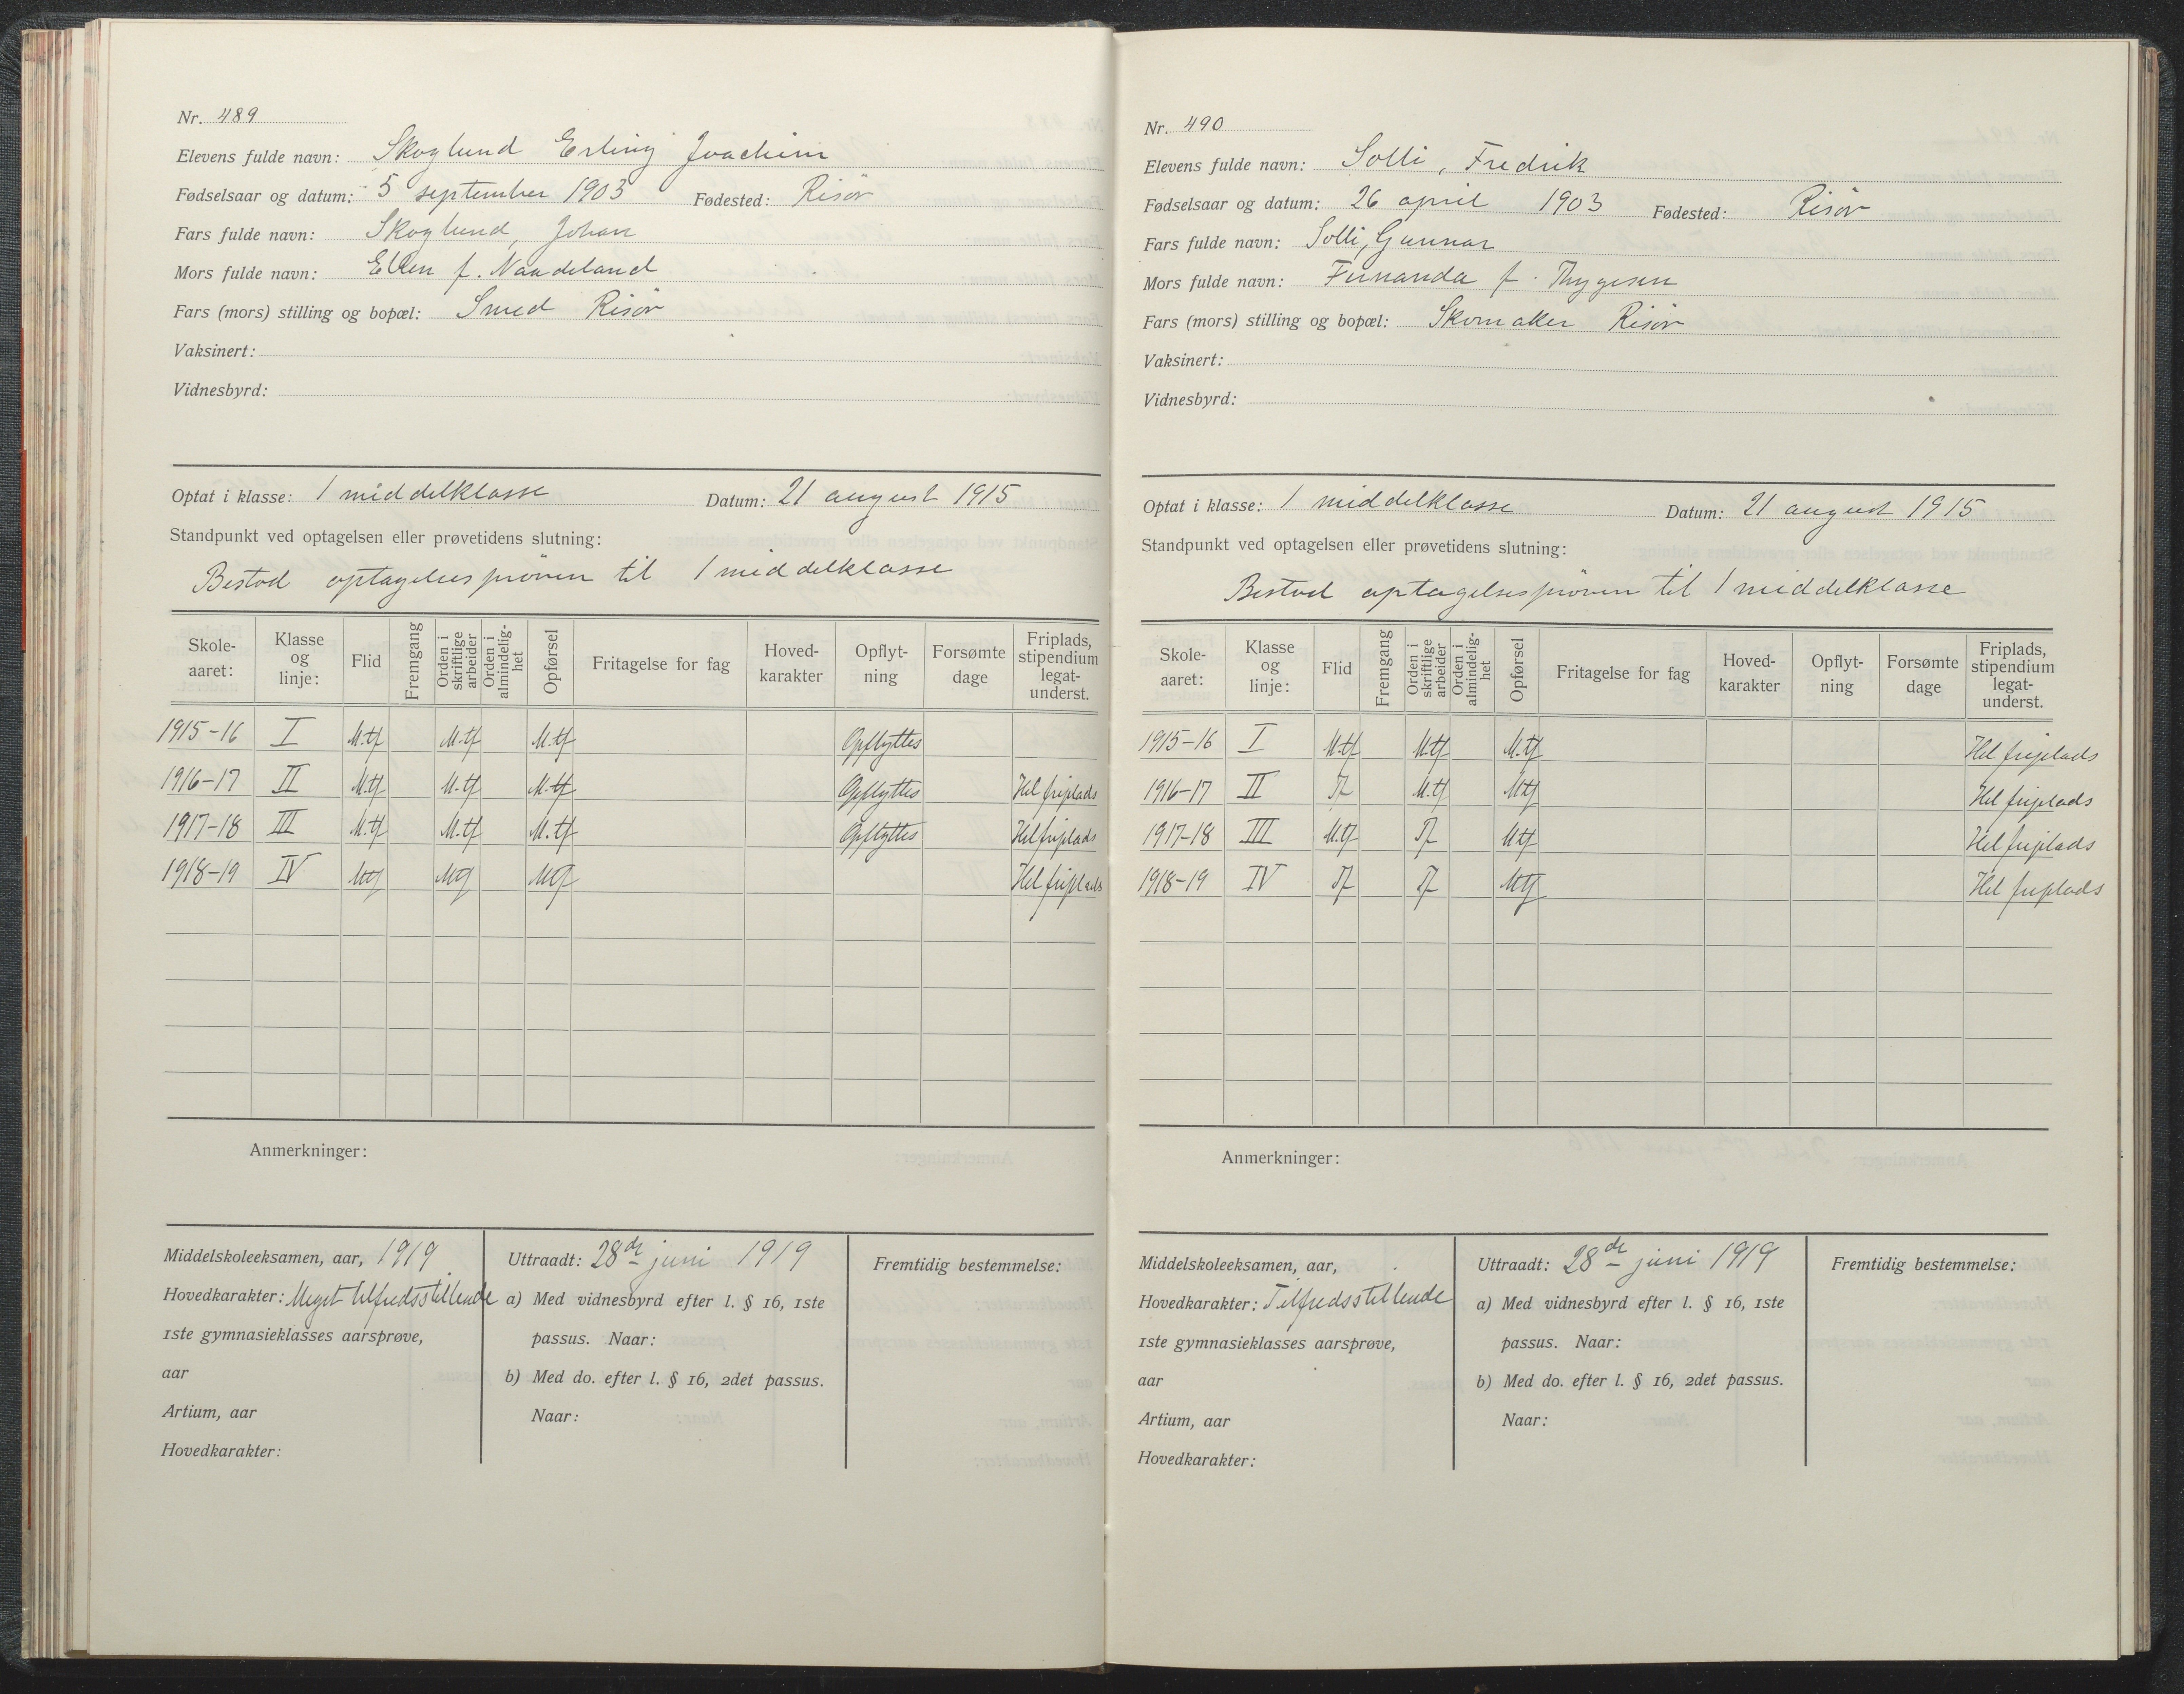 Nr. 489
Elevens fulde navn: Skoglund Erling Joachim
Fødselsaar og datum: 5 september 1903 Fødested: Risör
Fars fulde navn: Skoglund, Johan
Mors fulde navn: Ellen f. Naadeland
Fars (mors) stilling og bopæl: Smed Risör
Vaksinert:
Vidnesbyrd:
Optat i klasse: 1 middelklasse Datum: 21 august 1915
Standpunkt ved optagelsen eller prøvetidens slutning:
Bestod optagelsespröven til 1 middelklasse
Skole-aaret: Klasse og linje: Flid Fremgang Orden i skriftlige arbeider Orden i almindelig-het Opførsel Fritagelse for fag Hoved-karakter Opflyt-ning Forsømte dage Friplads, stipendium legat-underst.
1915-16 I M.tf M.tf M.tf Opflyttes
1916-17 II M.tf M.tf M.tf Opflyttes Hel friplads
1917-18 III M.tf M.tf M.tf Opflyttes Hel friplads
1918-19 IV Mtf Mtf Mtf Hel friplads
Anmerkninger:
Middelskoleeksamen, aar, 1919
Hovedkarakter: Meget tilfredsstillende
1ste gymnasieklasses aarsprøve,
aar
Artium, aar
Hovedkarakter:
Uttraadt: 28de juni 1919
a) Med vidnesbyrd efter l. § 16, 1ste
passus. Naar:
b) Med do. efter l. § 16, 2det passus.
Naar:
Fremtidig bestemmelse:
Nr. 490
Elevens fulde navn: Solli, Fredrik
Fødselsaar og datum: 26 april 1903 Fødested: Risör
Fars fulde navn: Solli, Gunnar
Mors fulde navn: Fernanda f. Thygesen
Fars (mors) stilling og bopæl: Skomaker Risör
Vaksinert:
Vidnesbyrd:
Optat i klasse: 1 middelklasse Datum: 21 august 1915
Standpunkt ved optagelsen eller prøvetidens slutning:
Bestod optagelsespröven til 1 middelklasse
Skole-aaret: Klasse og linje: Flid Fremgang Orden i skriftlige arbeider Orden i almindelig-het Opførsel Fritagelse for fag Hoved-karakter Opflyt-ning Forsømte dage Friplads, stipendium legat-underst.
1915-16 I M.tf M.tf M.tf Hel friplads
1916-17 II Tf M.tf Mtf Hel friplads
1917-18 III M.tf Tf Mtf Hel friplads
1918-19 IV Tf Tf Mtf Hel friplads
Anmerkninger:
Middelskoleeksamen, aar,
Hovedkarakter: Tilfredsstillende
1ste gymnasieklasses aarsprøve,
aar
Artium, aar
Hovedkarakter:
Uttraadt: 28de juni 1919
a) Med vidnesbyrd efter l. § 16, 1ste
passus. Naar:
b) Med do. efter l. § 16, 2det passus.
Naar:
Fremtidig bestemmelse: